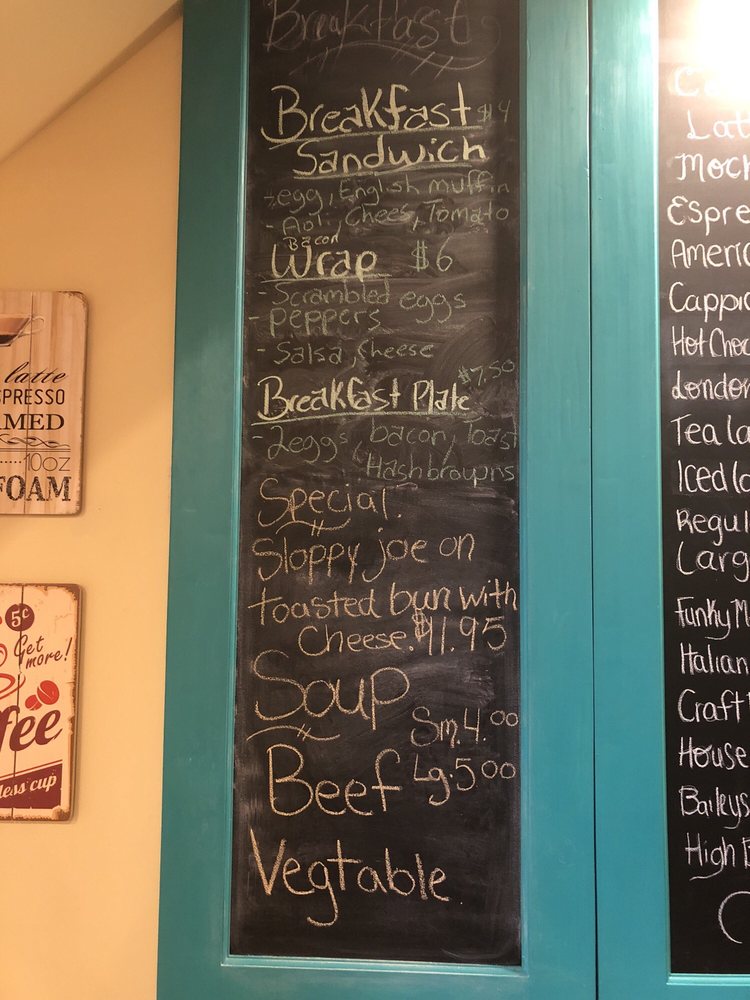 Breakfast
Breakfast $4
Sandwich
- egg, English muffin
- Aoli, Chees, Tomato
Bacon
Wrap $6
- Scrambled eggs
- Peppers
- Salsa, Cheese
$7.50
Breakfast Plate
- 2eggs, bacon, Toast
, Hashbrowns
Special.
Sloppy joe on
toasted bun with
Cheese. $11.95
Soup
Sm. 4.00
Beef Lg. 5.00
Vegtable
Lat
Moch
Espre
Americ
Cappic
Hot Choc
London
Tea la
Iced la
Regul
Larg
Funky M
Italian
Craft
House
Baileys
High B
latte
SPRESSO
AMED
10oz
FOAM
5¢
Get
more!
fee
less cup